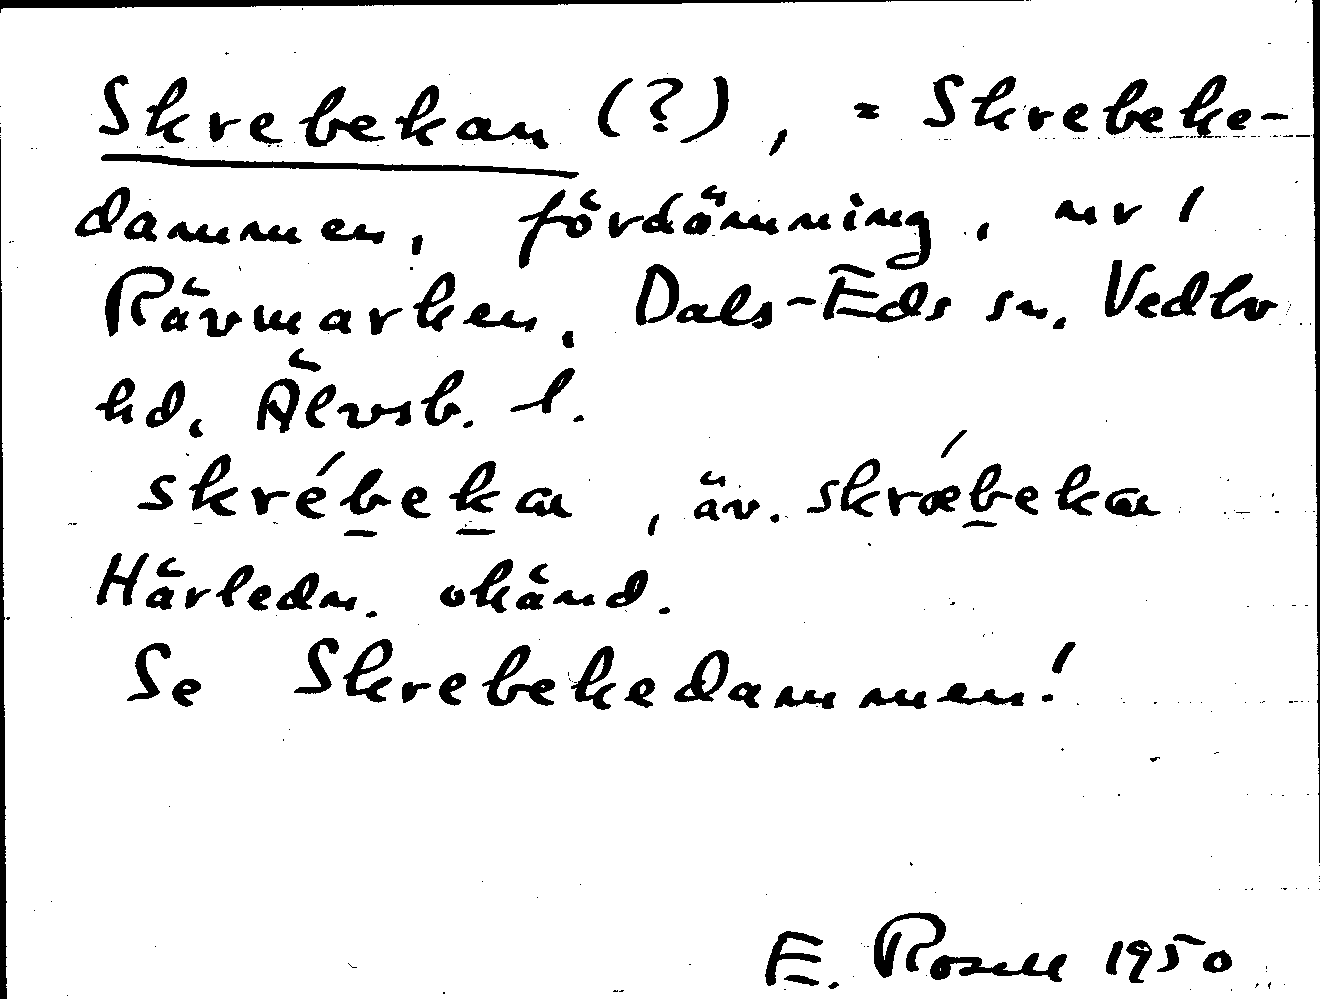 Skrebekan (?), = Skrebeke-
dammen, fördämning, nr 1
Rävmarken, Dals-Eds sn, Vedbo
hd, Älvsb. l.
skrébeka , äv. skræ´beka
Härledn. okänd.
Se Skrebekedammen!
E. Rosell 1950